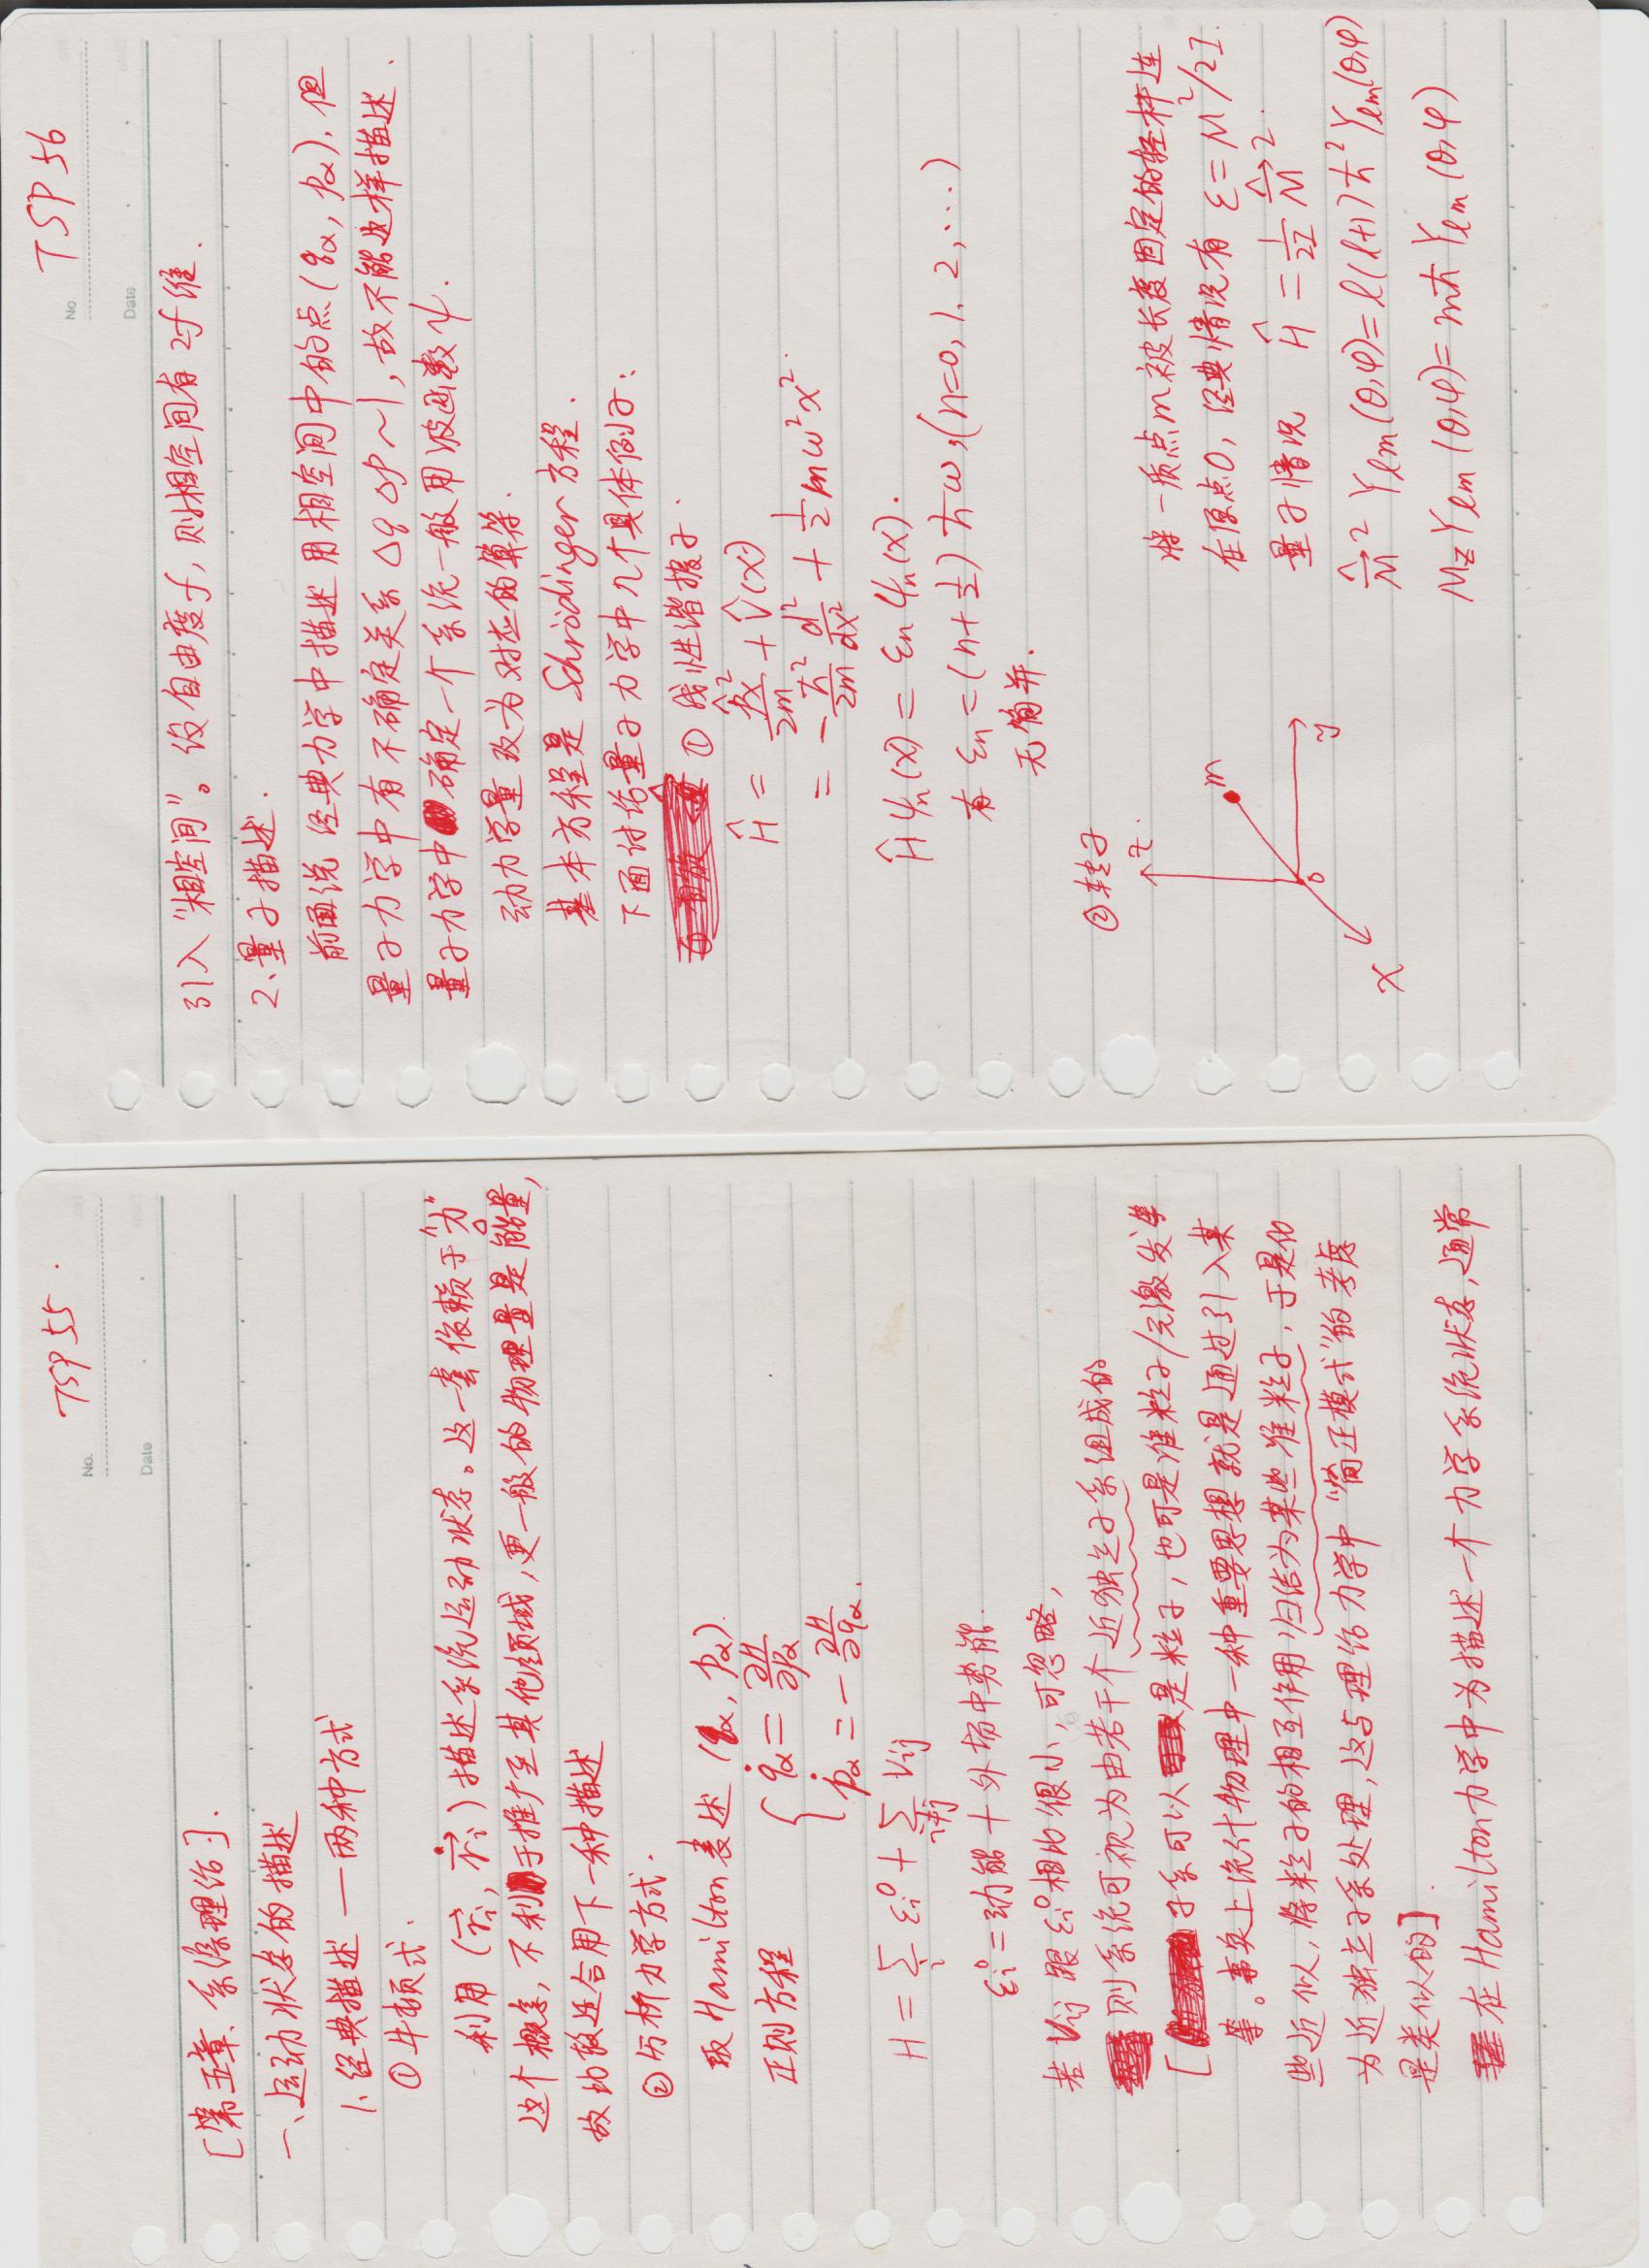 TSP 55.
No.
Date
[第五章、系综理论].
一、运动状态的描述
1、经典描述 — 两种方式
① 牛顿式.
利用 (r⃗ᵢ, ṙ⃗ᵢ) 描述系统运动状态。这一套依赖于"力"
这个概念, 不利于推广至其他领域, 更一般的物理量是能量,
故比较适合用下一种描述
② 分析力学方式.
取 Hamilton 表述 (qα, pα).
正则方程 { q̇α = ∂H/∂pα
ṗα = - ∂H/∂qα.
H = Σᵢ εᵢ⁰ + Σ_{i≠j} Vij
εᵢ⁰ = 动能 + 外场中势能.
若 Vij 跟 εᵢ⁰ 相比很小, 可忽略,
则系统可视为由若干个近独立子系组成的
[ 子系可以是粒子, 也可是准粒子/元激发等
等。事实上统计物理中一种重要思想就是通过引入某
些近似, 将粒子的相互作用归结为某些准粒子, 于是化
为近独立子系处理, 这与理论力学中"简正模式"的考虑
是类似的].
在 Hamilton 力学中为描述一个力学系统状态, 通常
TSP 56
No.
Date
引入"相空间"。设自由度 f, 则相空间有 2f 维.
2、量子描述.
前面说经典力学中描述用相空间中的点 (qα, pα), 但
量子力学中有不确定关系 Δq Δp ~ 1, 故不能这样描述.
量子力学中确定一个系统一般用波函数 ψ.
动力学量改为对应的算符.
基本方程是 Schrödinger 方程.
下面讨论量子力学中几个具体例子:
① 线性谐振子.
Ĥ = p̂x²/2m + V̂(x)
= - ħ²/2m d²/dx² + 1/2 mω²x².
Ĥψn(x) = εn ψn(x).
有 εn = (n+1/2) ħω, (n=0, 1, 2, …)
无简并.
② 转子
z.
m
0
y
x
将一质点 m 被长度固定的轻杆连
在原点 O, 经典情况有 ε = M²/2I.
量子情况 Ĥ = 1/2I M̂⃗².
M̂⃗² Yℓm(θ,φ) = ℓ(ℓ+1) ħ² Yℓm(θ,φ)
Mz Yℓm(θ,φ) = mħ Yℓm(θ,φ)